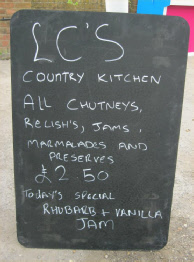 LC'S
COUNTRY KITCHEN
ALL CHUTNEYS,
RELISH'S, JAMS,
MARMALADES AND
PRESERVES
£2 50
Today's SPECIAL
RHUBARB + VANILLA
JAM